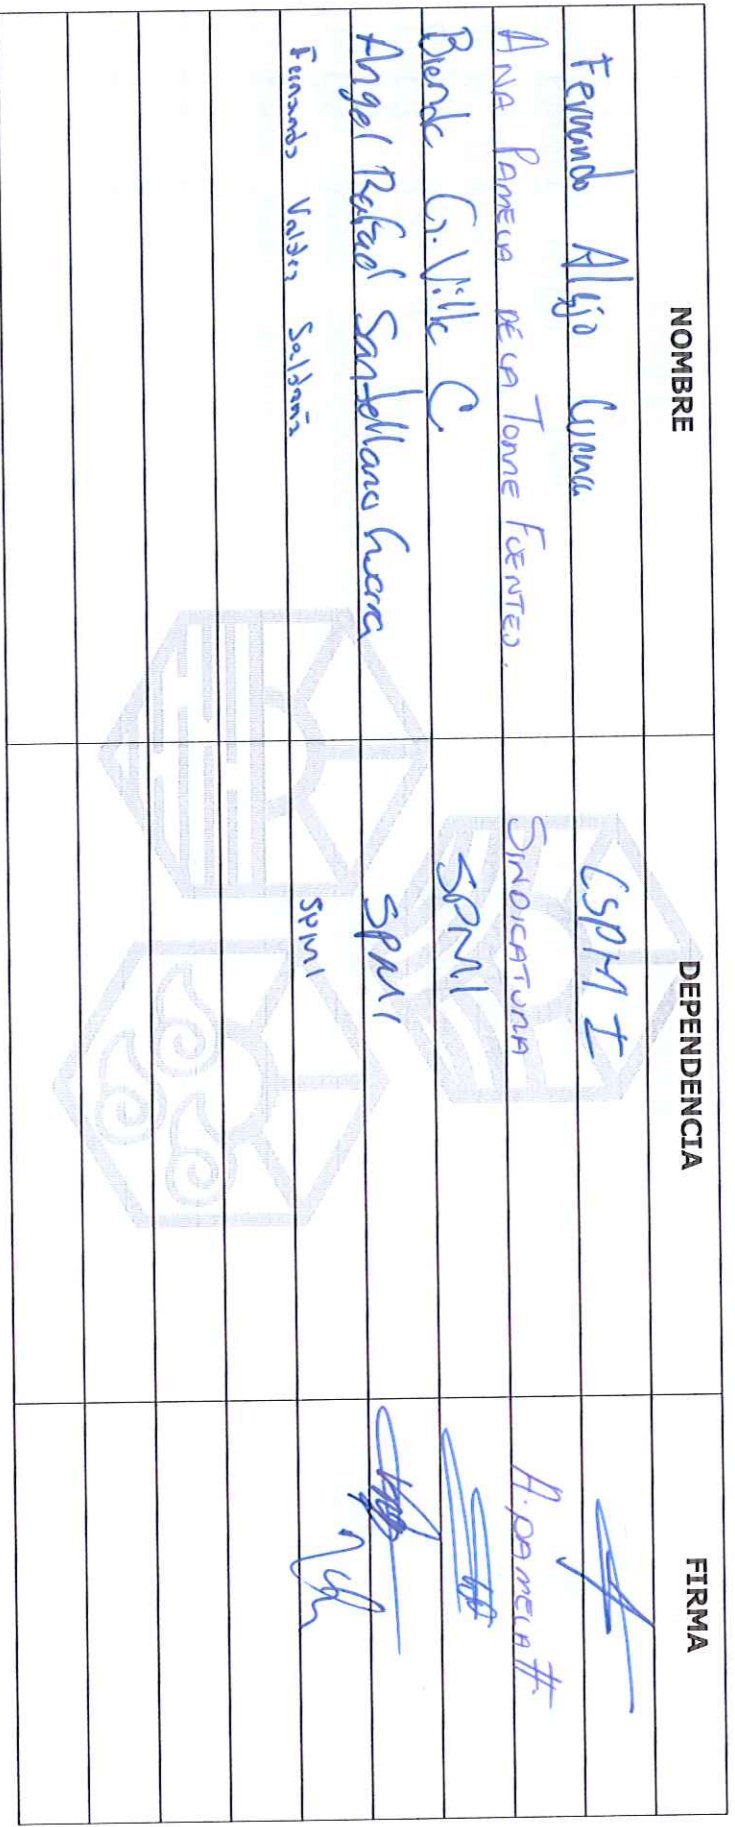 NOMBRE DEPENDENCIA FIRMA
Fernando Alejo CSPM I
ANA PAMELA DE LA TORRE FUENTES. SINDICATURA A. PAMELA
Brenda G. Ville C SPMI
Angel Rafael Santellano Guerra SPMI
Fernando Valdez Saldaña SPMI